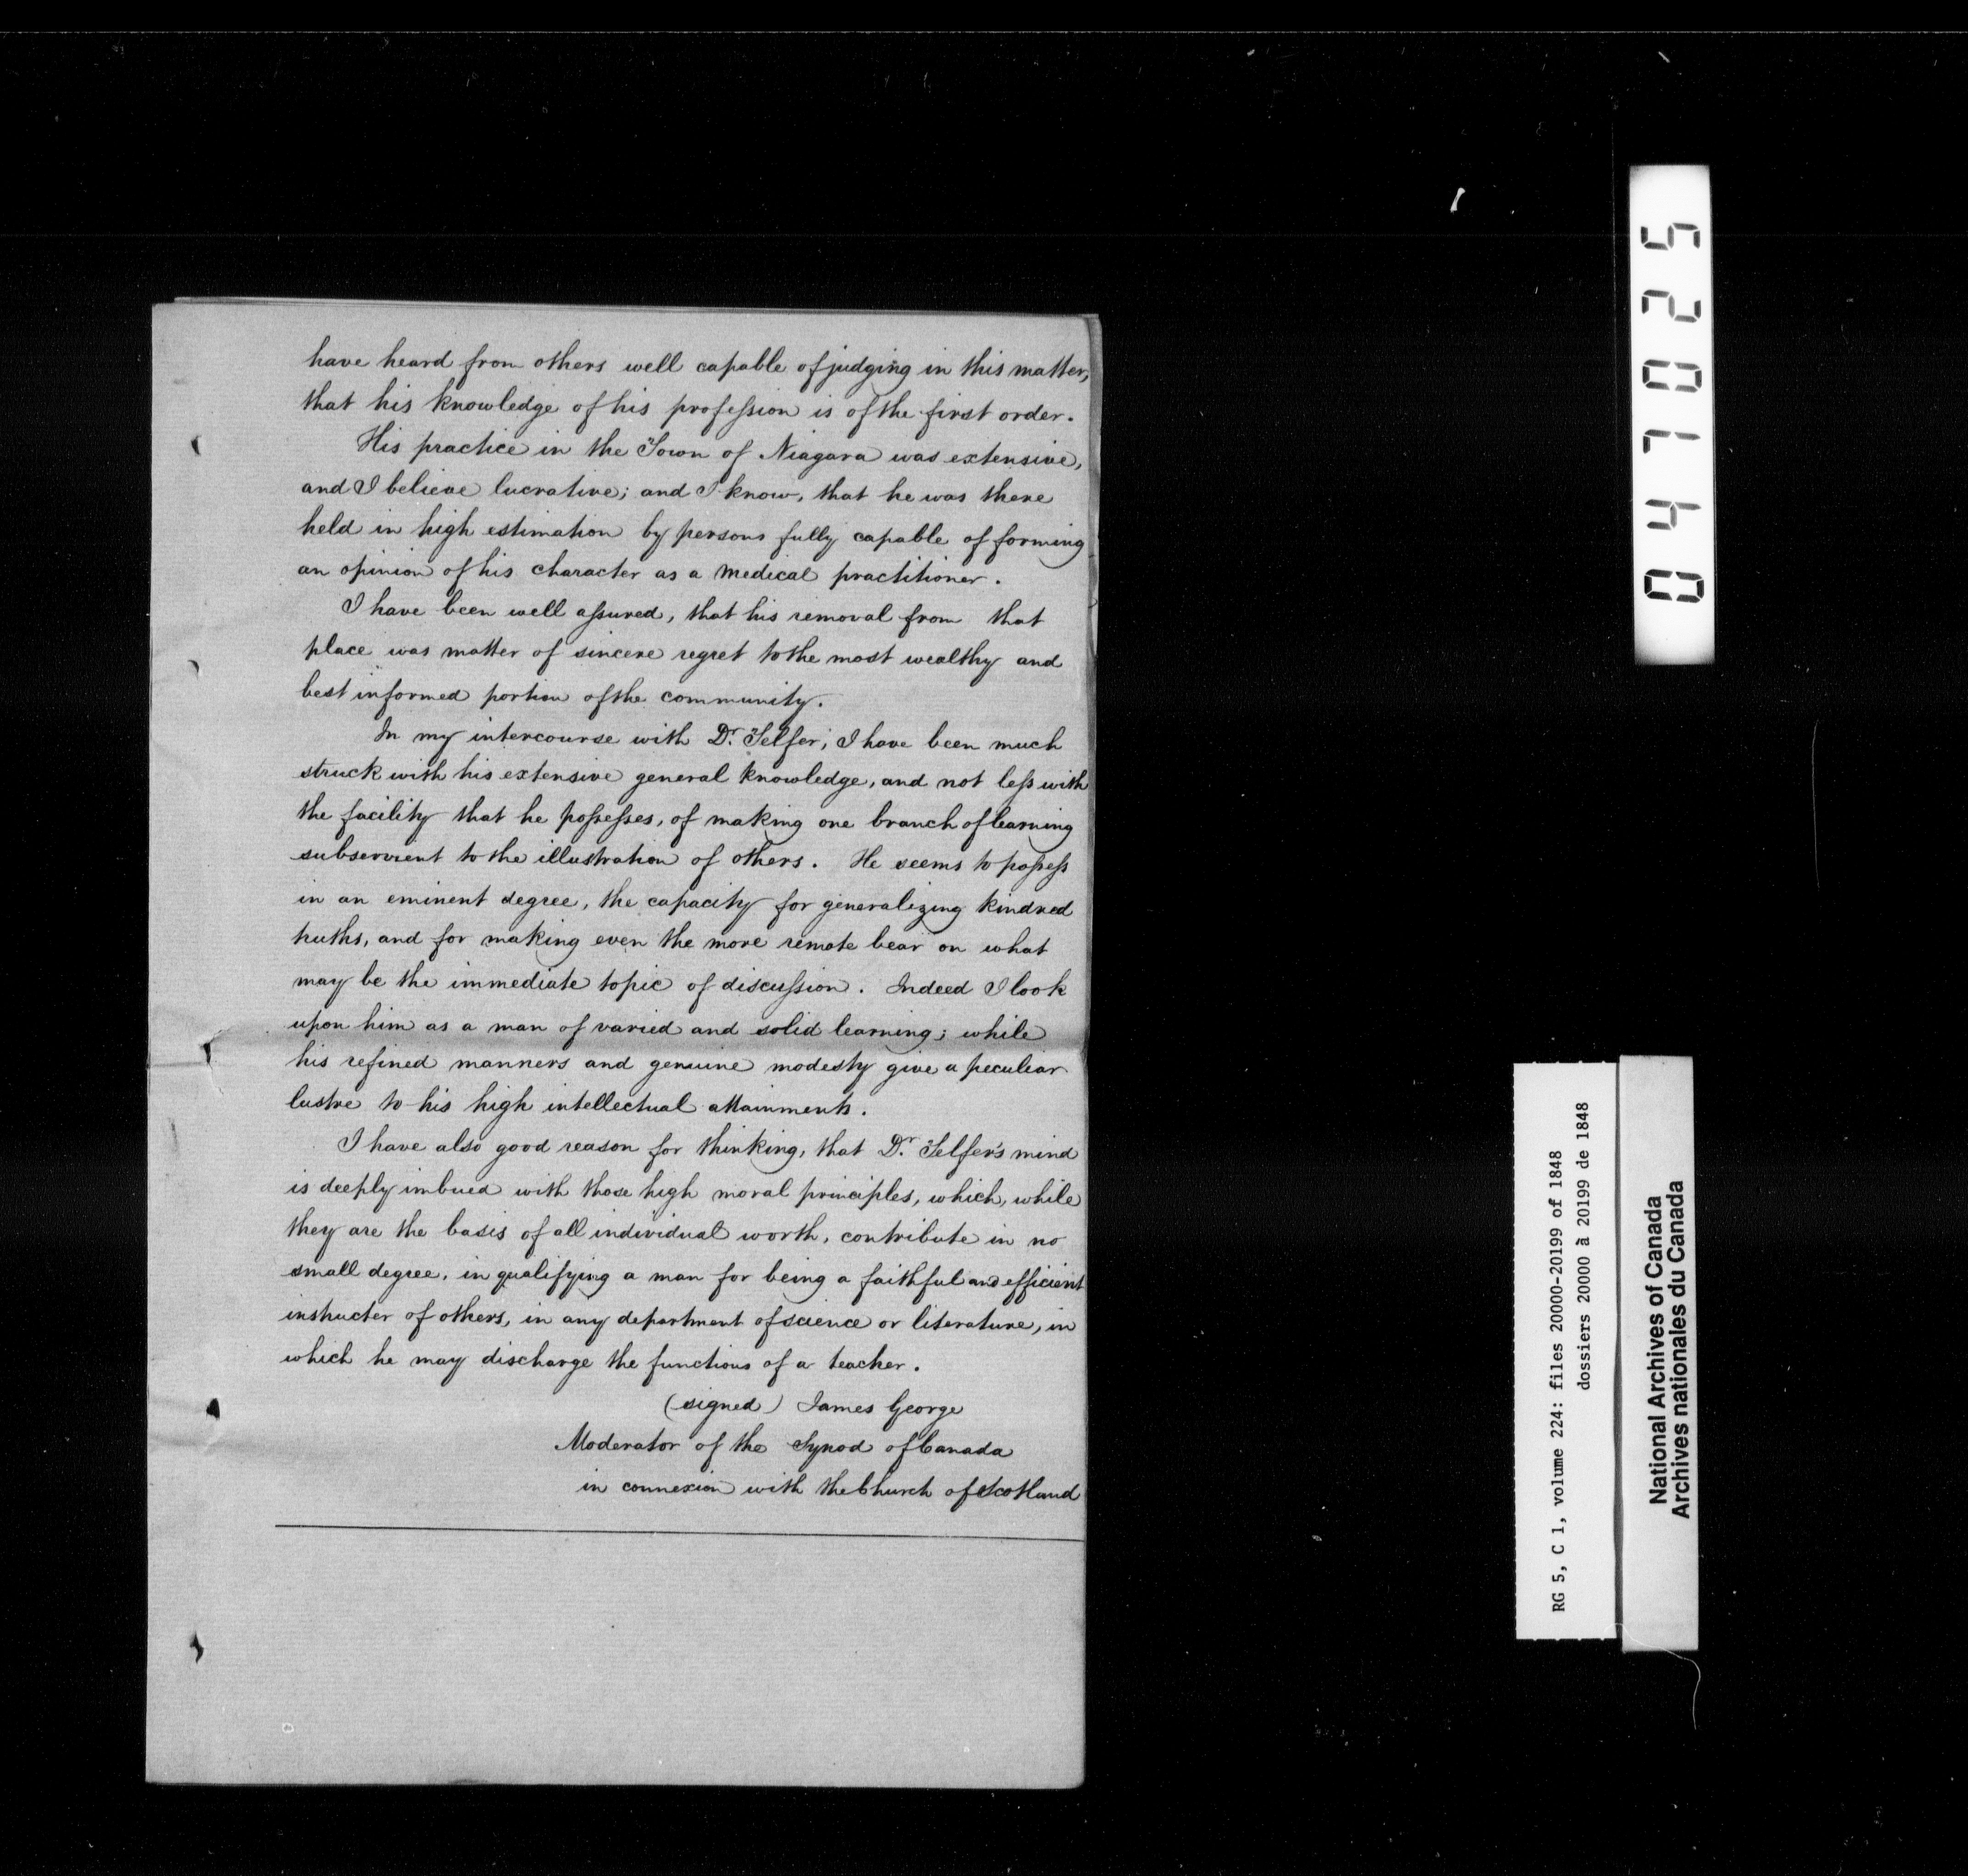 have heard from others well capable of judging in this matter,
that his knowledge of his profession is of the first order.
His practice in the Town of Niagara was extensive,
and I believe lucrative; and I know, that he was there
held in high estimation by persons fully capable of forming
an opinion of his character as a medical practitioner.
I have been well assured, that his removal from that
place was matter of sincere regret to the most wealthy and
best informed portion of the community.
In my intercourse with Dr. Telfer, I have been much
struck with his extensive general knowledge, and not less with
the facility that he possesses, of making one branch of learning
subservient to the illustration of others. He seems to possess
in an eminent degree, the capacity for generalizing kindred
truths, and for making even the more remote bear on what
may be the immediate topic of discussion. Indeed I look
upon him as a man of varied and solid learning; while
his refined manners and genuine modesty give a peculiar
lustre to his high intellectual attainments.
I have also good reason for thinking, that Dr. Telfer's mind
is deeply imbued with those high moral principles, which, while
they are the basis of all individual worth, contribute in no
small degree, in qualifying a man for being a faithful and efficient
instructer of others, in any department of science or literature, in
which he may discharge the functions of a teacher.
(signed) James George
Moderator of the Synod of Canada
in connexion with the Church of Scotland
047025
RG 5, C 1, volume 224: files 20000-20199 of 1848
dossiers 20000 à 20199 de 1848
National Archives of Canada
Archives nationales du Canada